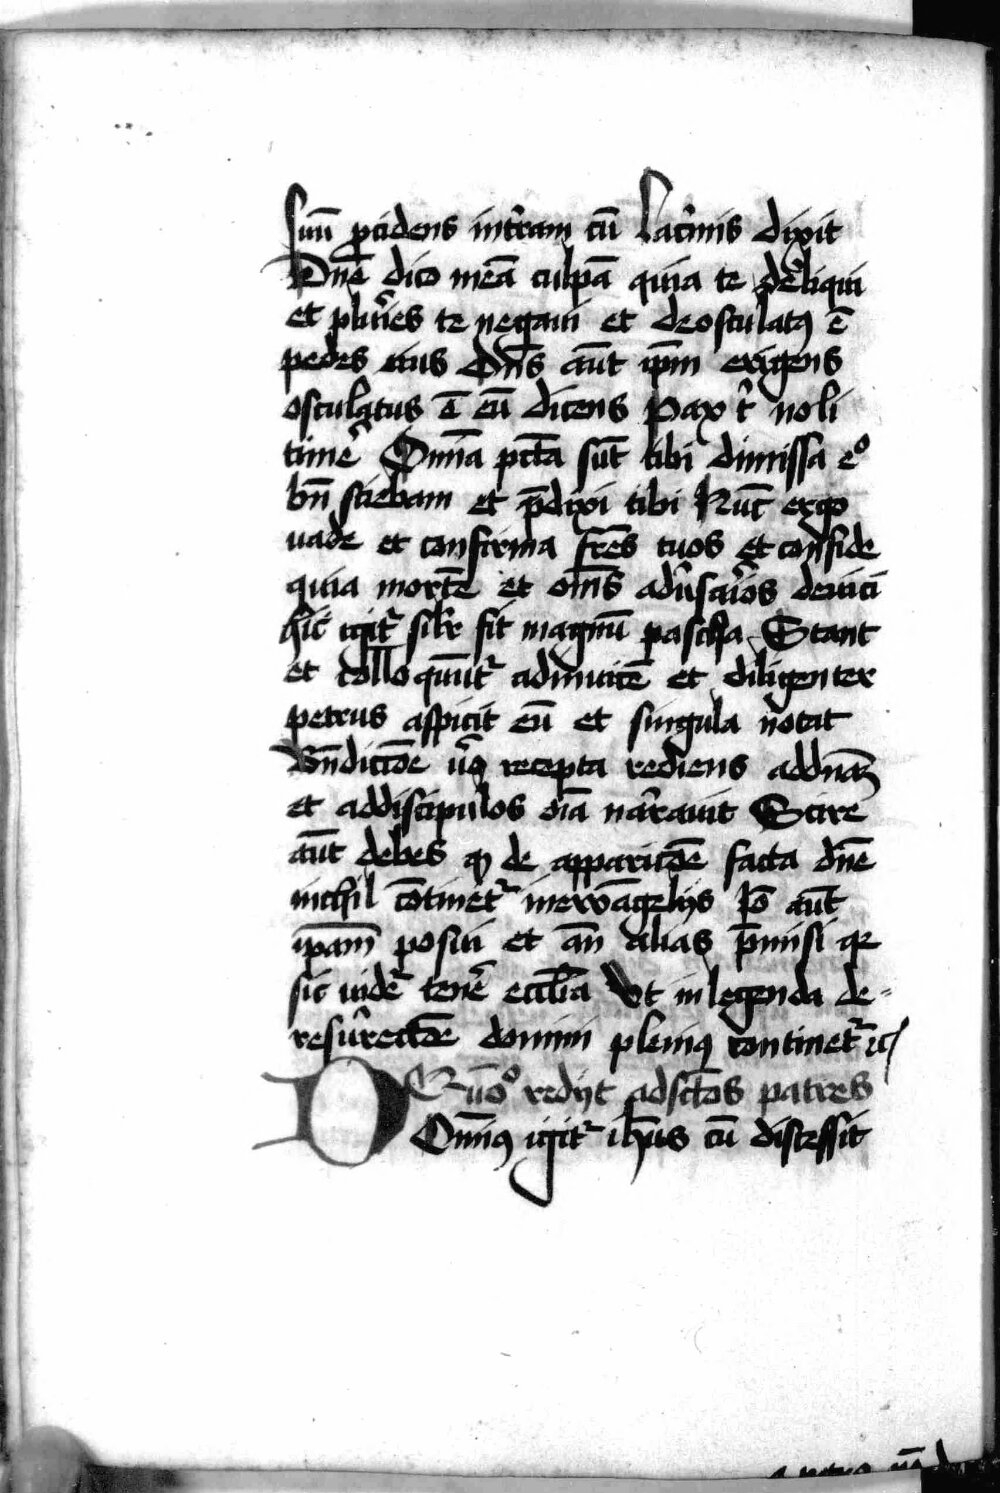 suū p̄cidens int̄ram cū lac̄mis dixit
Dn̄e dico meā culpā quia te deliqui
et plur̄ies te negaui et deosculatꝯ ē
pedes eius Dn̄s aūt ip̄m erigens
osculatus ē eū dicens pax t̄ noli
timē Om̄ia pctā sūt tibi dimissa eͦ
bn̄ sciebam et p̄dixi tibi Nūc ergo
uade et confirma fr̄es tuos et confide
quia mortē et om̄s adūsarios deuici
hic igit̄ silr̄ fit magnū pascha Stant
et colloquūt̄ adinuicē et diligenter
petrus aspicit eū et singula notat
Bn̄dictōe ūo recepta rediens addnāꝫ
et addiscipulos oīa nar̄auit Scire
aūt debes ꝙ de apparicōe facta dn̄e
nichil cōtinet̄ inewāgelijs Iō aūt
ip̄am posui et an̄ alias p̄misi qr
sic uidet̄ tenē eccl̄ia Vt in legenda de-
resūrectōe domini pleniꝯ continet̄ ꝛc̄
Qūoͦ redijt adsctōs patres
Dominꝯ igit̄ ih̄us cū discessit